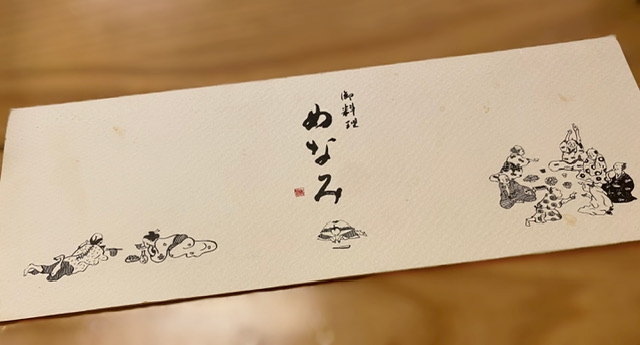 御料理
めなみ